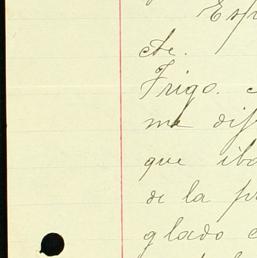 Esp
de.
Trigo.
me dij
que iba
de la p
glado c